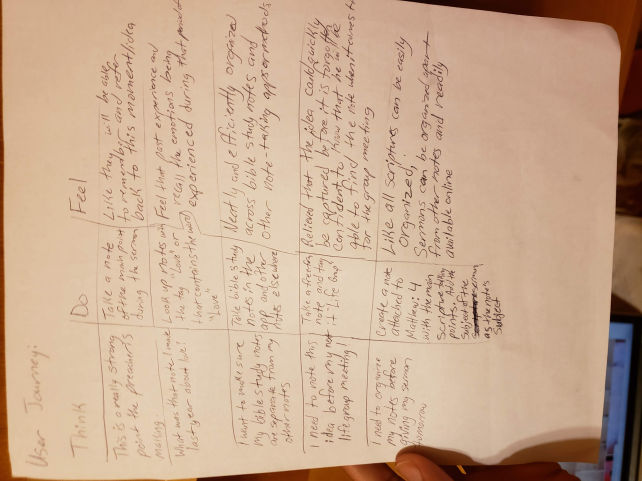 User Journey:
Think
Do
Feel
This is a really strong
point the preacher is
making.
Take a note
of the main point
during the sermon
Like they will be able
to remember and refer
back to this moment/idea
What was that note I made
last year about love?
Look up notes with
the tag "Love" or
that contains the word
"Love"
Feel that past experience and
recall the emotions being
experienced during that
I want to make sure
my bible study notes
are separate from my
other notes
Take bible study
notes in the
app and other
notes elsewhere
Neatly and efficiently organized
across bible study notes and
other note-taking apps or methods
I need to note this
idea before my next
life group meeting!
Take a freeform
note and tag
it "Life Group"
Relieved that the idea could quickly
be captured before it is forgotten
Confident to know that he will be
able to find the note when it comes
for the group meeting
I need to organize
my notes before
giving my sermon
tomorrow
Create a note
attached to
Matthew: 4
with the main
Scripture talking
points. Add the
subject of the
sermon
as the note's
subject
Like all scriptures can be easily
organized,
Sermons can be organized apart
from other notes and readily
available online